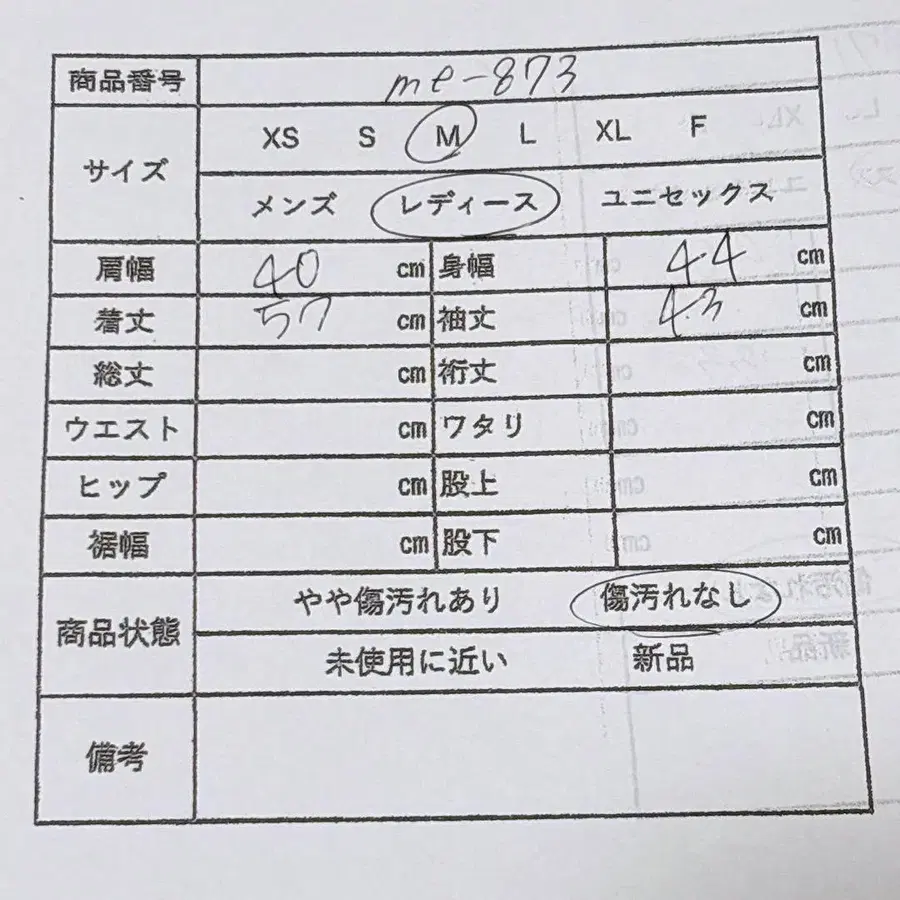 商品番号 me-873
サイズ XS S M L XL F
メンズ レディース ユニセックス
肩幅 40 cm 身幅 44 cm
着丈 57 cm 袖丈 43 cm
総丈 cm 裄丈 cm
ウエスト cm ワタリ cm
ヒップ cm 股上 cm
裾幅 cm 股下 cm
商品状態 やや傷汚れあり 傷汚れなし
未使用に近い 新品
備考